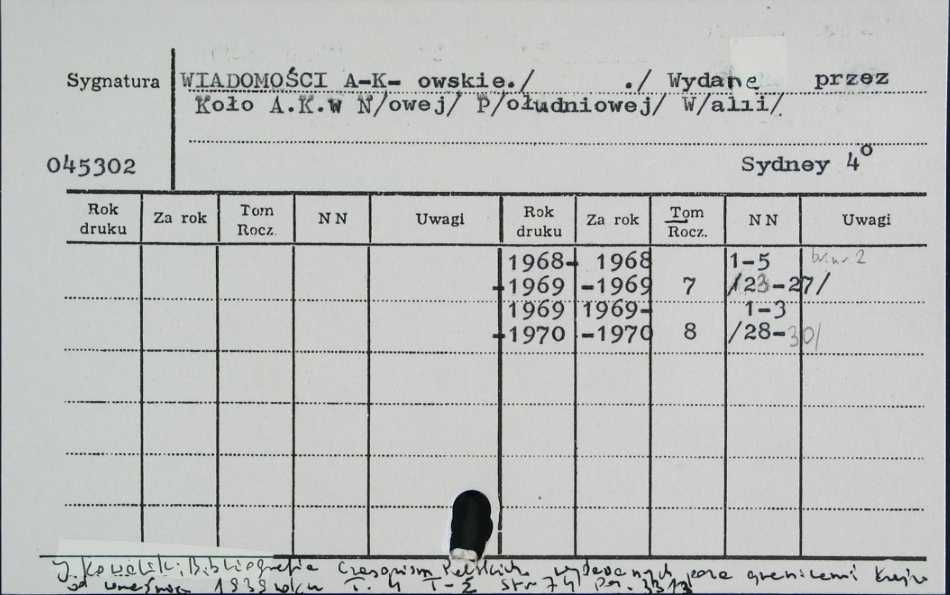 Sygnatura WIADOMOŚCI A-K- owskie./ ./ Wydane przez
Koło A.K.w N/owej/ P/ołudniowej/ W/alii/.
045302 Sydney 4°
Rok druku Za rok Tom Rocz. NN Uwagi Rok druku Za rok Tom Rocz. NN Uwagi
1968- 1968 1-5 br.nr 2
-1969 -1969 7 /23-27/
1969 1969- 1-3
-1970 -1970 8 /28-30/
J. Kowalski: Bibliografia Czasopism Polskich wydawanych poza granicami Kraju
od września 1939 roku T. 4 T-Z str 74